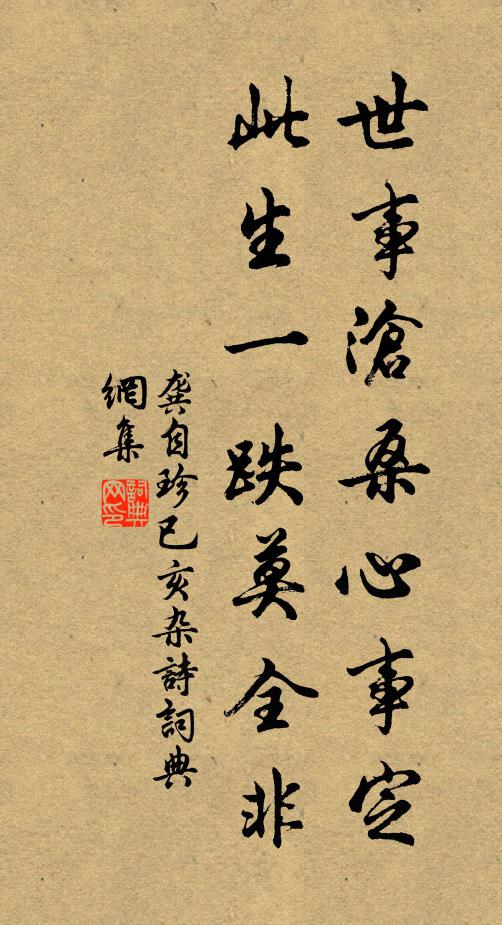 世事滄桑心事定
此生一跌莫全非
龔自珍己亥杂詩詞典
網集
詞典
网印